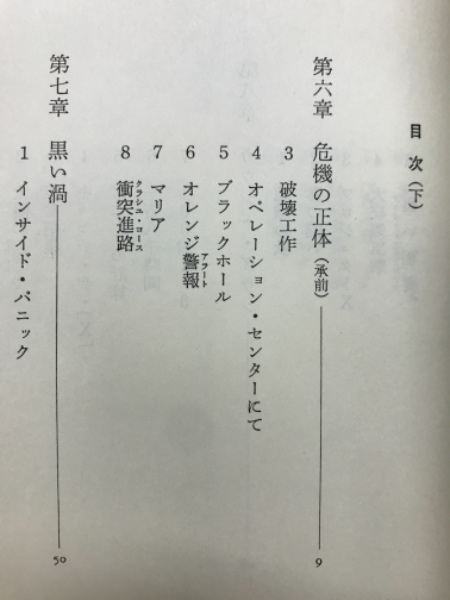 目次(下)
第六章 危機の正体(承前) 9
3 破壊工作
4 オペレーション・センターにて
5 ブラックホール
6 オレンジ警報
アラート
7 マリア
8 衝突進路
クラシュ・コース
第七章 黒い渦 50
1 インサイド・パニック